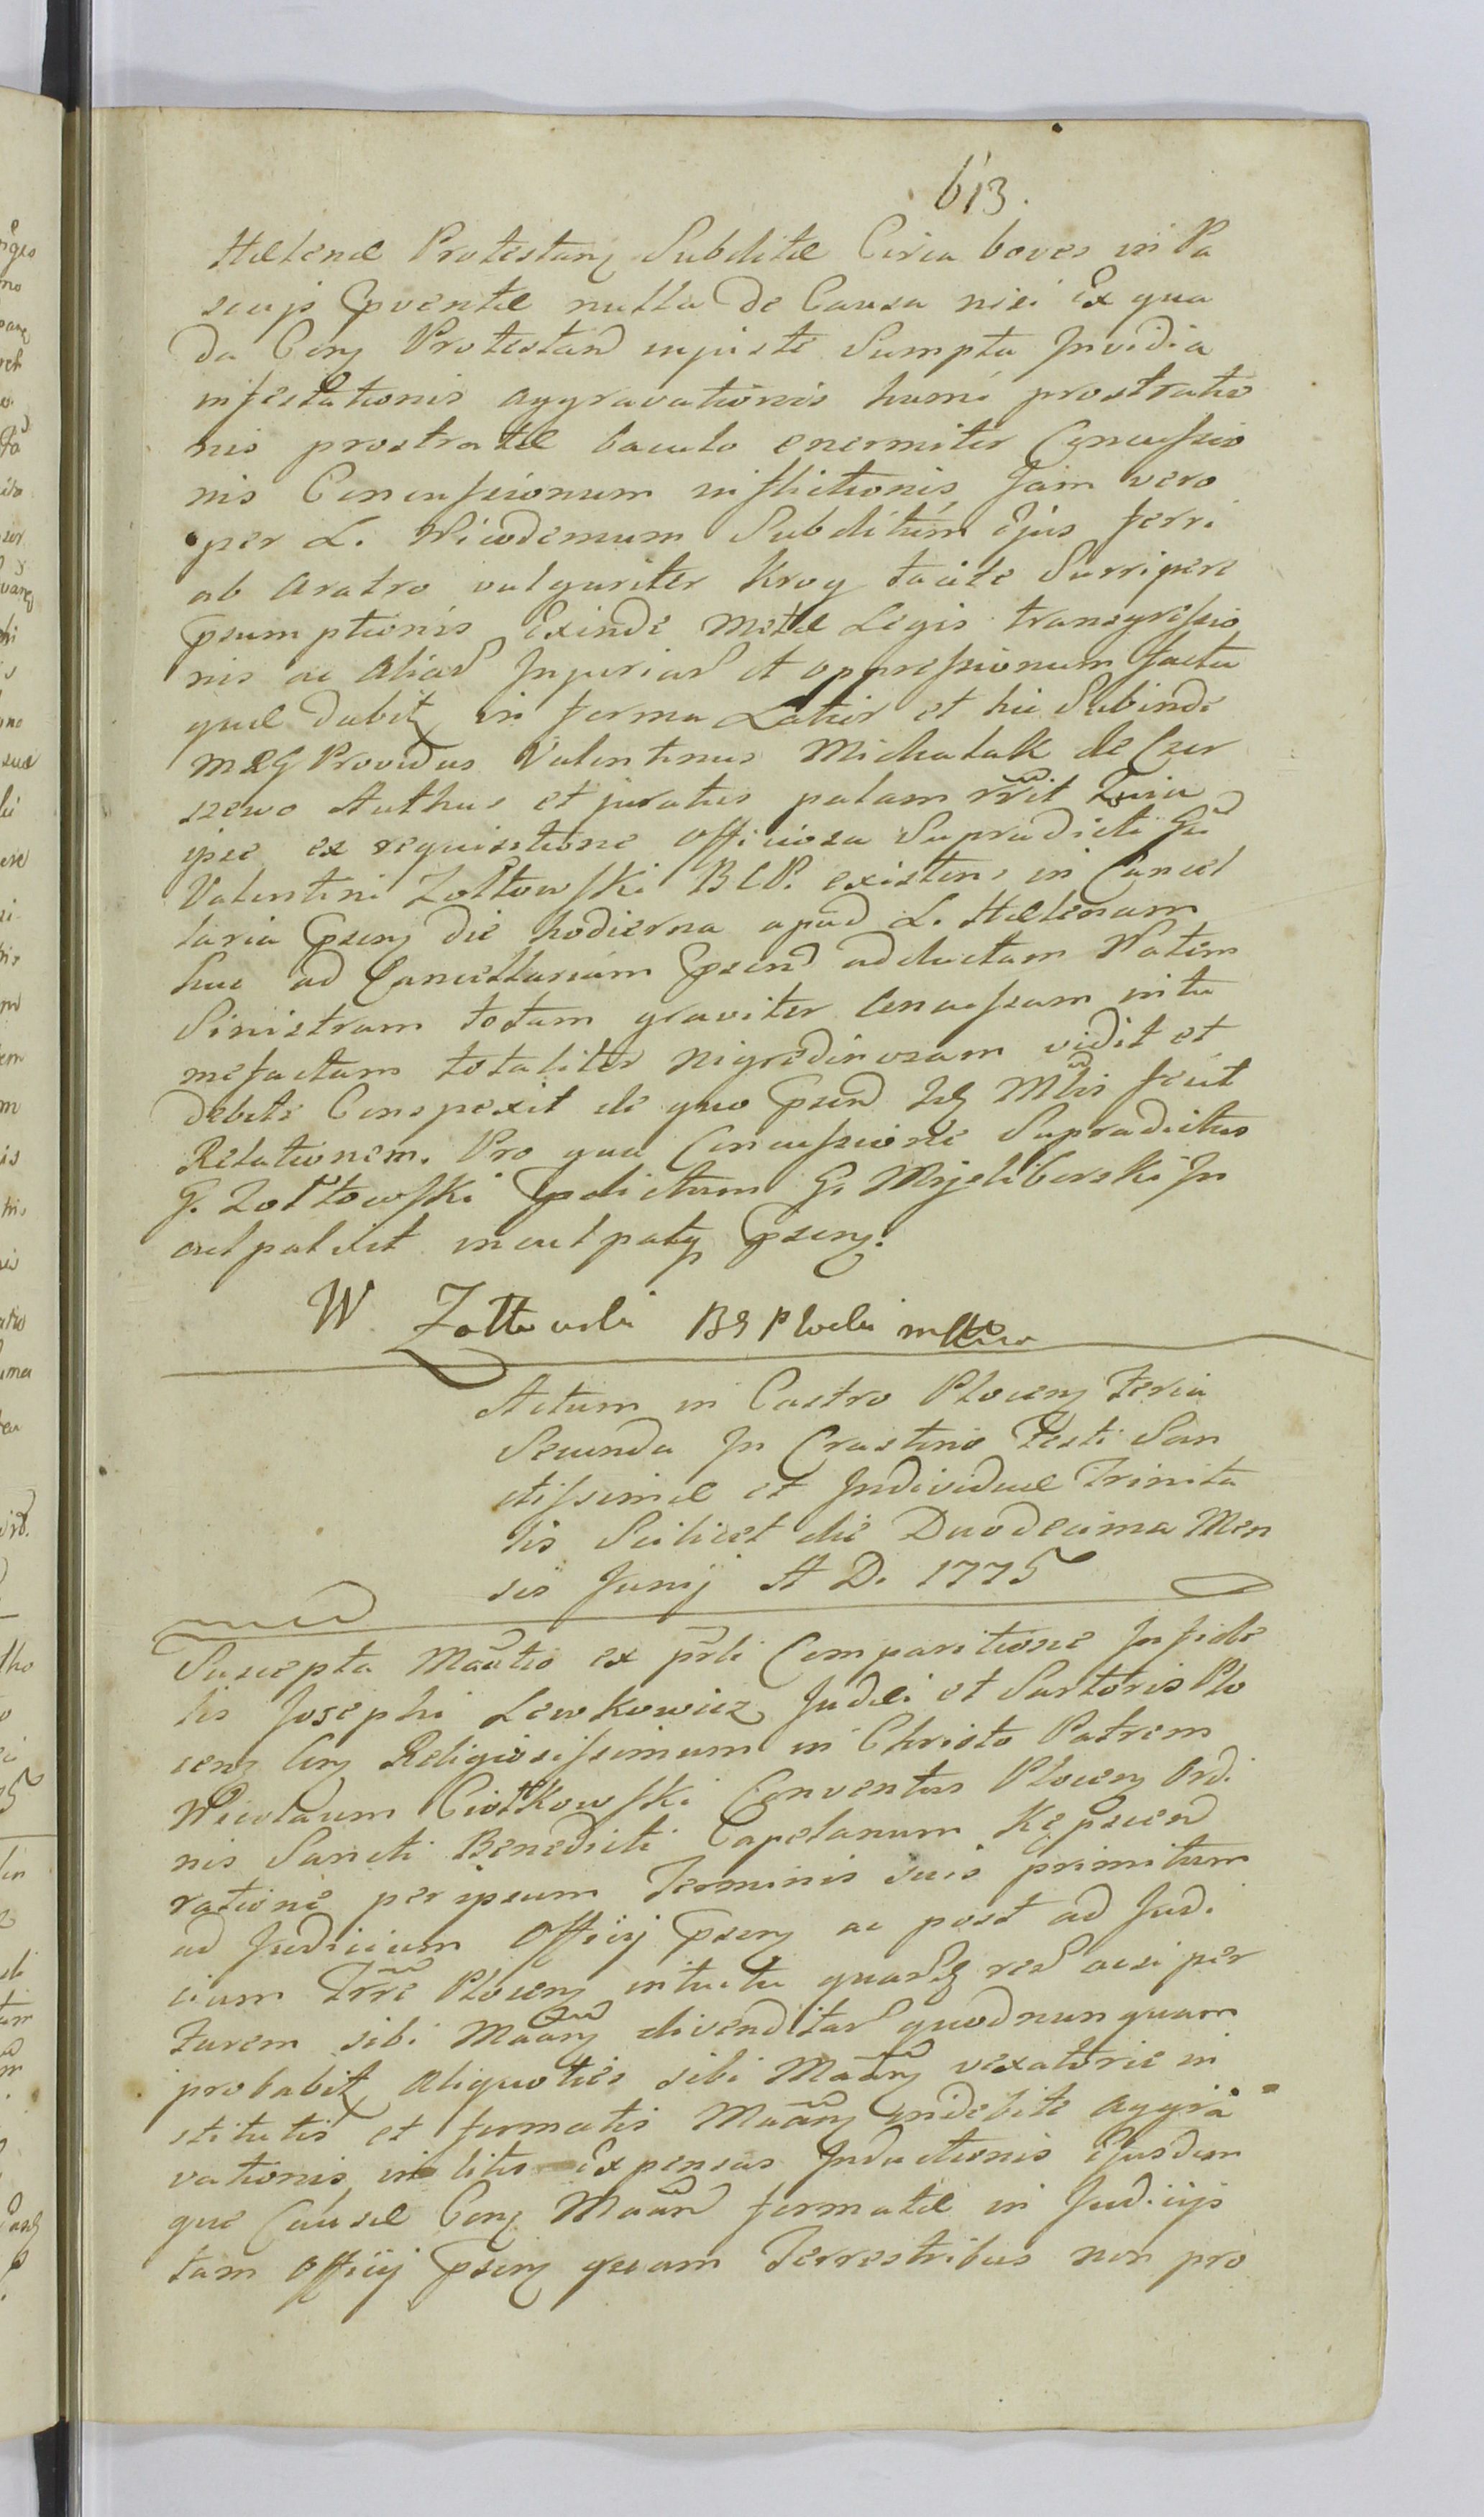 613.
Helenæ Protestanꝫ Subditæ Circa boves in Pa
scujs Ꝓventæ nulla de Causa nisi Ex qua
da Conꝫ Protestand injuste Sumpta Invidia
infestationis aggravationis humi prostratio
nis prostratæ baculo enormiter Concussio
nis Concussionum inflictionis, Jam vero
per L. Nicodemum Subditum Ejus ferri
ab aratro vulgariter Kroy tacite Surripere
Ꝓsumptionis Exinde Metæ Legis transgressio
nis ac aliar Injuriar et oppressionum facta
quæ dabitꝫ in forma Latior et hic Subinde
Providus Valentinus Michalak de Czer
szewo Authus et juratus palam rrit Quia
ipse ex requisitione Officiosa Supradicti Gsi
Valentini Zołtowski BCP. existens in Cancel
laria Ꝓsenꝫ die hodierna apud L. Helenam
huc ad Cancellariam Ꝓsend adductam Natem
Sinistram totam graviter Concussam intu
mefactam totaliter nigredinosam vidit et
debite Conspexit de quo Ꝓsend Mbis fecit
Relationem. Pro qua Concussione Supradictus
G. Zołtowski Ꝓdictum G. Mysliborski In
culpat Ꝓsenꝫ.
W Zołtowski BG Płocki
Actum in Castro Plocenꝫ Feria
Secunda In Crastino Festi San
ctissimæ et Individuæ Trinita
tis Scilicet die Duodecima Men
sis Junij A D. 1775
Suscepta Maatio ex prli Comparitione Infide
lis Josephi Lewkowicz Judæi et Sartoris Plo
cenꝫ Conꝫ Religiosissimum in Christo Patrem
Nicolaum Ciołkowski Conventus Plocenꝫ Ordi
nis Sancti Benedicti Capelanum
ratione per ipsum Terminis suis primitum
ad Judicium Officij Ꝓsenꝫ ac post ad Judi
cium Trre Plocenꝫ intuitu rer acsi per
Furem sibi Maanꝫ divenditar quod nunquam
probabitꝫ Aliquoties sibi Maanꝫ vexatorie in
stitutis et formatis Maanꝫ indebite Aggra
vationis, in litis Expensas Inductionis Ejusdem
que Causæ Conꝫ Maand formatæ in Judicijs
tam Officij Ꝓsenꝫ quam Terrestribus non pro